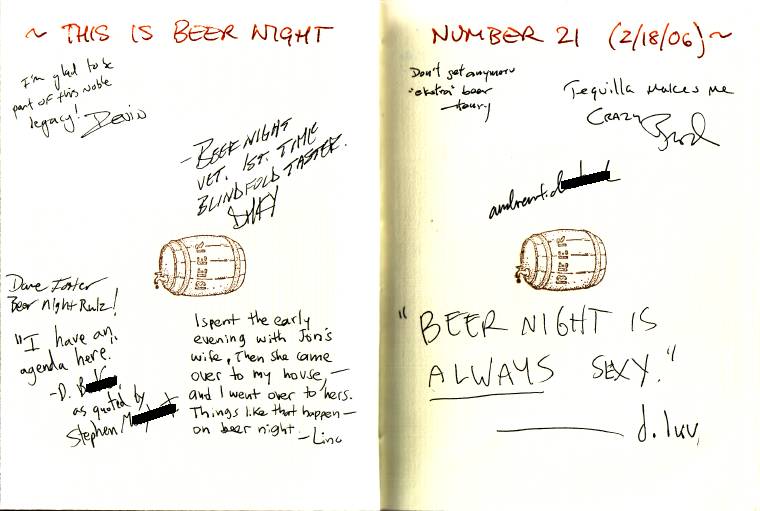 ~ THIS IS BEER NIGHT
I'm glad to be
part of this noble
legacy! Devin
- BEER NIGHT
VET. 1ST. TIME
BLINDFOLD TASTER.
BEER
Dave Foster
Beer Night Rulz!
"I have an
agenda here."
- D. B
as quoted by
Stephen M
I spent the early
evening with Jon's
wife. Then she came
over to my house, —
and I went over to hers.
Things like that happen —
on beer night.
- Lina
NUMBER 21 (2/18/06) ~
Don't get anymore
"ekstra" beer
Tequilla makes me
CRAZY
BEER
"BEER NIGHT IS
ALWAYS SEXY."
d. luv